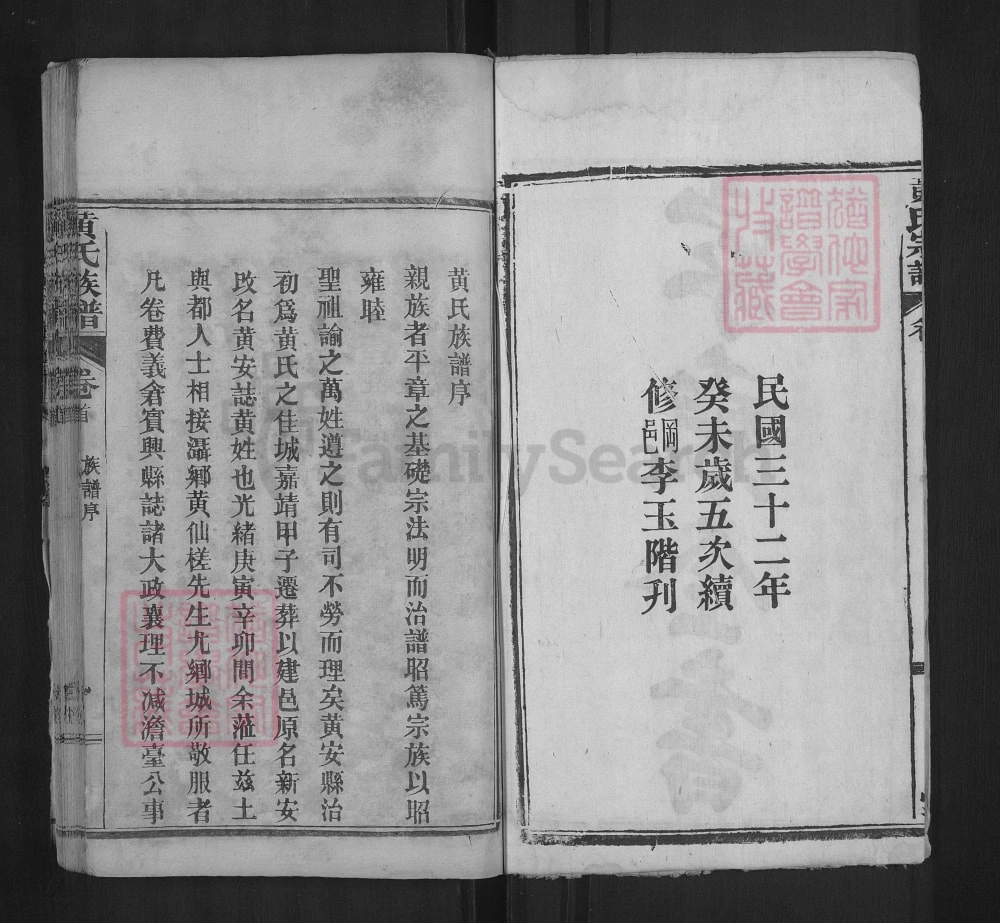 黄氏宗譜
卷
民國三十二年
癸未歲五次續
修岡邑李玉階刋
猶他家譜學會收藏
黄氏族譜序
親族者平章之基礎宗法明而治譜昭篤宗族以昭
雍睦
聖祖諭之萬姓遵之則有司不勞而理矣黄安縣治
初爲黄氏之佳城嘉靖甲子遷葬以建邑原名新安
改名黄安誌黄姓也光緒庚寅辛卯間余蒞任兹土
與都人士相接灄鄉黄仙槎先生尤鄉城所敬服者
凡卷費義倉賓興縣誌諸大政襄理不减澹臺公事
黄氏族譜
卷首
族譜序
FamilySearch